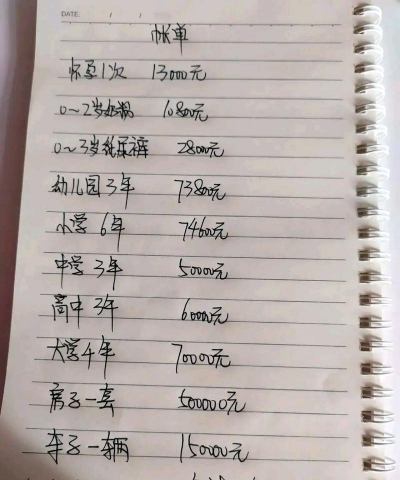 DATE: / /
帐单
怀孕1次 13000元
0~2岁奶粉 10800元
0~3岁纸尿裤 28000元
幼儿园3年 73800元
小学6年 74600元
中学3年 50000元
高中3年 60000元
大学4年 70000元
房子一套 500000元
车子一辆 150000元